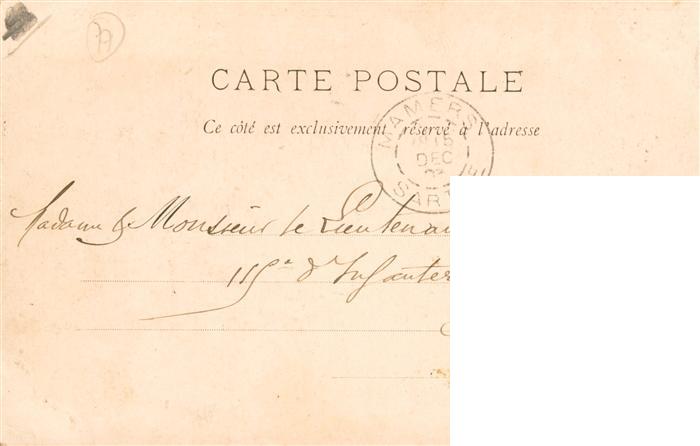 77
CARTE POSTALE
Ce côté est exclusivement réservé à l'adresse
MAMERS
15
DEC
SAR
Madame & Monsieur le Lieutena
115e d'Infanter